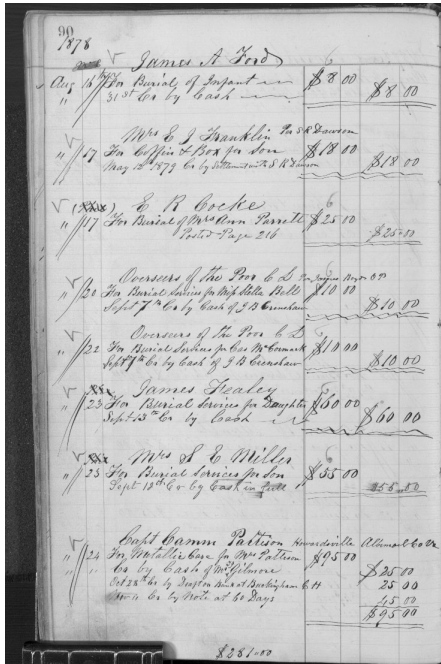 90
1878
James A Ford
Aug 16th For Burial of Infant $8 00
" 31st Cr by Cash $8 00
Mrs E J Franklin Per S R Dawson
" 17 For Coffin & Box for Son $18 00
May 12th 1879 Cr by Settlement with S R Dawson $18 00
E R Cocke
" 17 For Burial of Mrs Ann Parrett $25 00
Posted Page 216 $25.00
Overseers of the Poor C L Per
" 20 For Burial Services for Miss Stella Bell $10 00
Sept 7th Cr by Cash of J B Crenshaw $10 00
Overseers of the Poor C L
" 22 For Burial Services for Cas McCormack $10 00
Sept 7th Cr by Cash of J B Crenshaw $10 00
James Fealey
" 23 For Burial Services for Daughter $60 00
Sept 13th Cr by Cash $60 00
Mrs S E Miller
" 23 For Burial Services for Son $55 00
Sept 12th Cr by Cash in full $55.00
Capt Camm Pattison Howardsville Albemarl Co Va
" 24 For Metallic Case for Mrs Pattison $95 00
" Cr by Cash of Mr Gilmore $25 00
Oct 28th Cr by Buckingham C H 25 00
Cr by Note at 60 Days 45 00
$95 00
$281.00